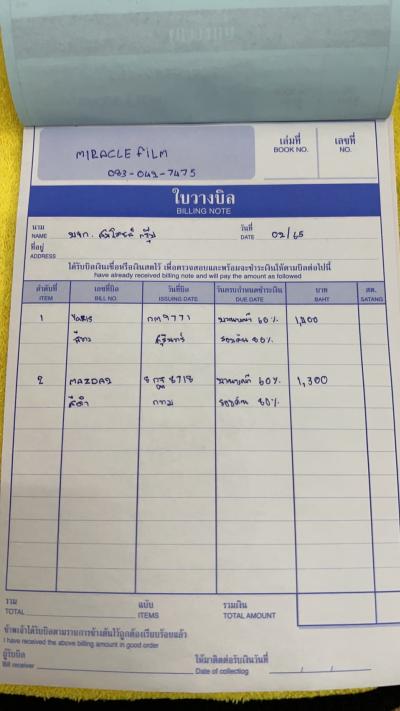 MIRACLE FILM
083-042-7475
เล่มที่ เลขที่
BOOK NO. NO.
ใบวางบิล
BILLING NOTE
นาม วันที่
NAME DATE 02/65
ที่อยู่
ADDRESS
ได้รับบิลเงินเชื่อหรือเงินสดไว้ เพื่อตรวจสอบและพร้อมจะชำระเงินให้ตามบิลต่อไปนี้
have already received billing note and will pay the amount as followed
ลำดับที่ เลขที่บิล วันที่บิล วันครบกำหนดชำระเงิน บาท สต.
ITEM BILL NO. ISSUING DATE DUE DATE BAHT SATANG
1 YARIS กM9771 บานหน้า 60%
สีขาว สุรินทร์ รอบคัน 80%
2 MAZDA2 8718 บานหน้า 60% 1,300
สีดำ กทม รอบคัน 80%
รวม ฉบับ รวมเงิน
TOTAL ITEMS TOTAL AMOUNT
ข้าพเจ้าได้รับบิลตามรายการข้างต้นไว้ถูกต้องเรียบร้อยแล้ว
I have received the above billing amount in good order
ผู้รับบิล ให้มาติดต่อรับเงินวันที่
Bill receiver Date of collectiog